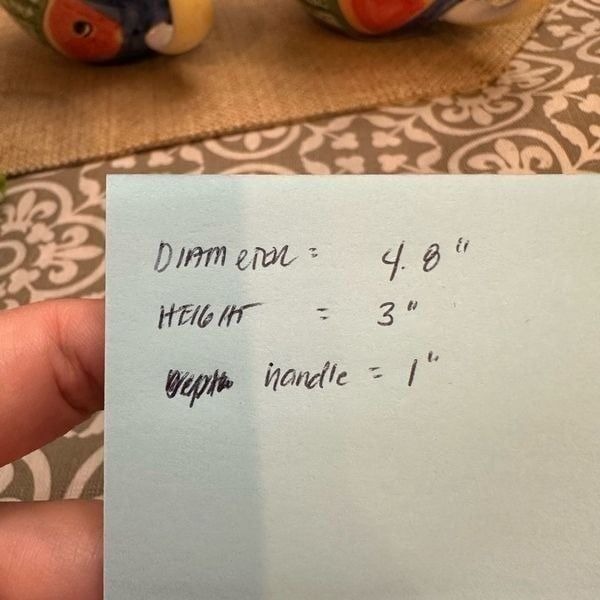 DIAMETER = 4.8"
HEIGHT = 3"
Depth handle = 1"